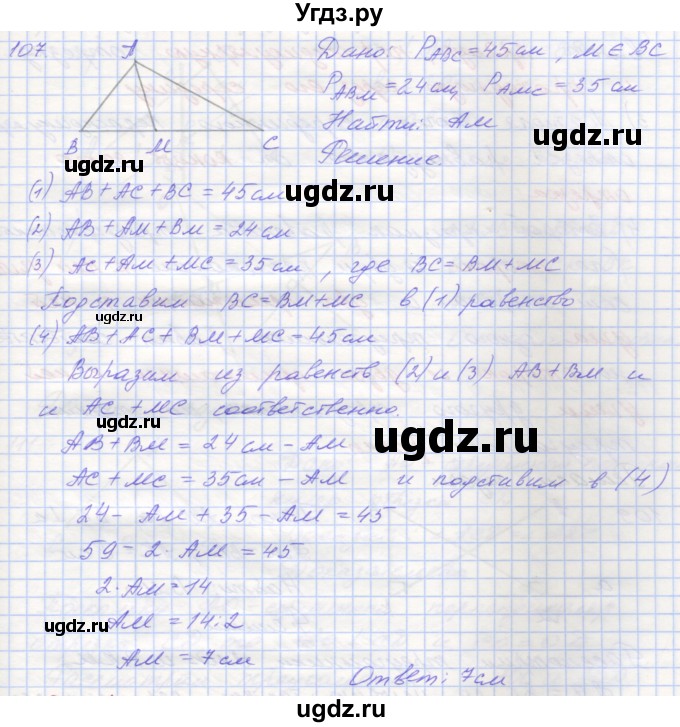 Угдз.ру
107.
A
B
M
C
Дано: P_ABC = 45 см, M ∈ BC
P_ABM = 24 см, P_AMC = 35 см
Найти: AM
Решение.
(1) AB + AC + BC = 45 см
(2) AB + AM + BM = 24 см
(3) AC + AM + MC = 35 см, где BC = BM + MC
Подставим BC = BM + MC в (1) равенство
(4) AB + AC + BM + MC = 45 см
Выразим из равенств (2) и (3) AB + BM и
и AC + MC соответственно.
AB + BM = 24 см - AM
AC + MC = 35 см - AM и подставим в (4)
24 - AM + 35 - AM = 45
59 - 2 · AM = 45
2 · AM = 14
AM = 14 : 2
AM = 7 см
Ответ: 7 см
ugdz.ru
ugdz.ru
ugdz.ru
ugdz.ru
ugdz.ru
ugdz.ru
ugdz.ru
ugdz.ru
ugdz.ru
ugdz.ru